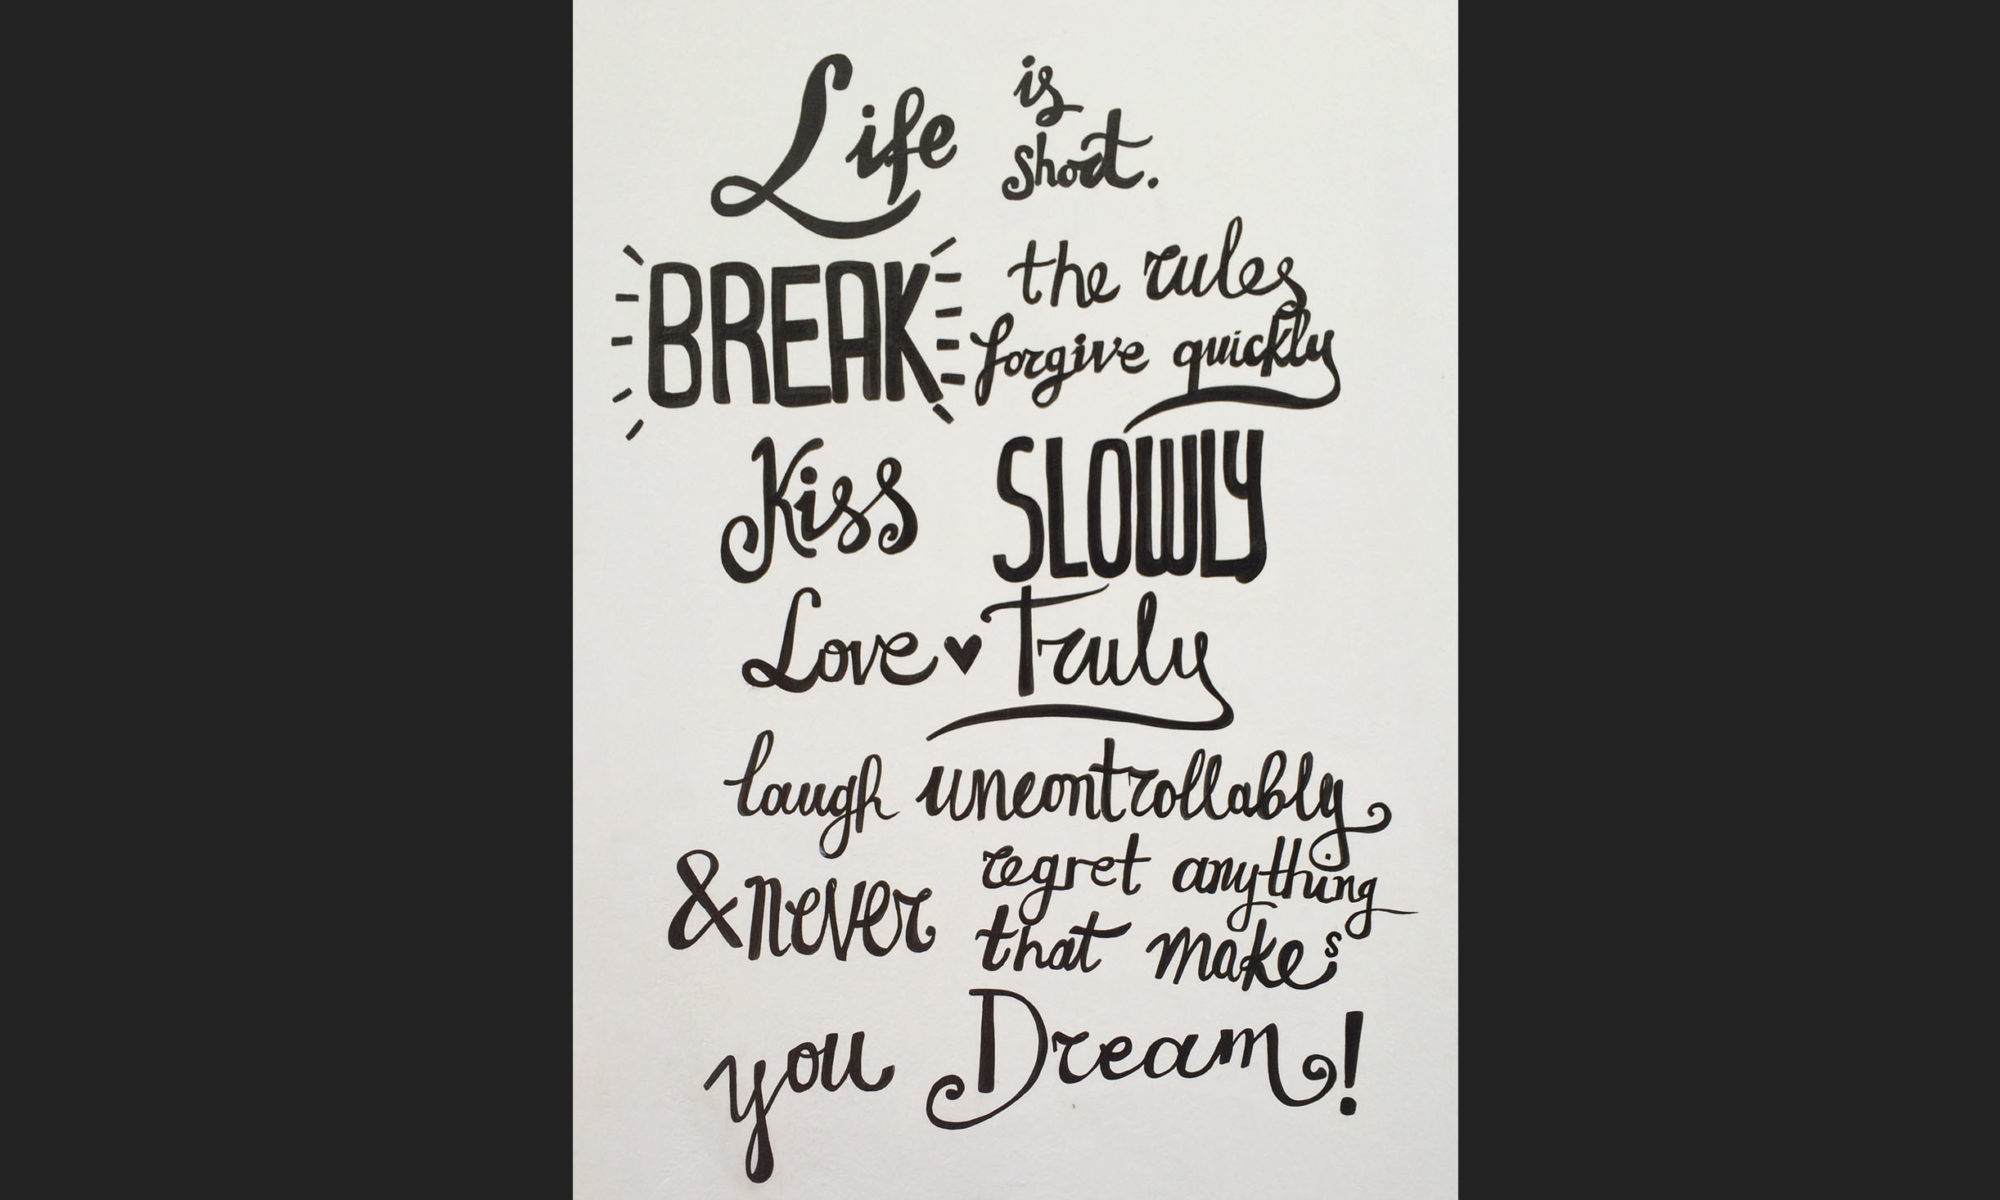 Life is short.
BREAK the rules
forgive quickly
Kiss SLOWLY
Love ♥ Truly
laugh uncontrollably
& never regret anything
that makes
you Dream!